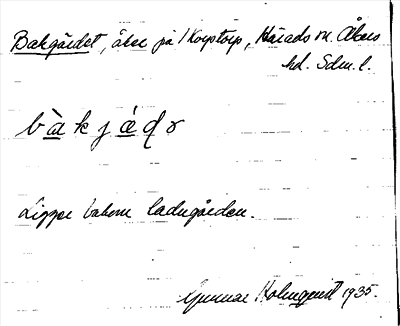 Bakgärdet, åker på 1 Korpstorp, Härads sn. Åkers
hd. Sdm. l.
bàkjäɖɤ
Ligger bakom ladugården.
Gunnar Holmquist 1935.